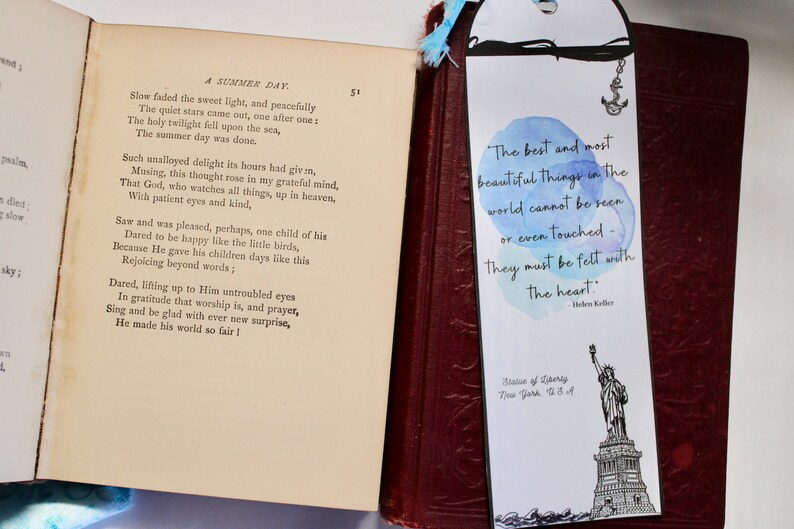 and;
psalm,
n died;
g slow
sky;
an
d,
A SUMMER DAY.
51
Slow faded the sweet light, and peacefully
The quiet stars came out, one after one:
The holy twilight fell upon the sea,
The summer day was done.
Such unalloyed delight its hours had given,
Musing, this thought rose in my grateful mind,
That God, who watches all things, up in heaven,
With patient eyes and kind,
Saw and was pleased, perhaps, one child of his
Dared to be happy like the little birds,
Because He gave his children days like this
Rejoicing beyond words;
Dared, lifting up to Him untroubled eyes
In gratitude that worship is, and prayer,
Sing and be glad with ever new surprise,
He made his world so fair!
"The best and most
beautiful things in the
world cannot be seen
or even touched -
they must be felt with
the heart."
- Helen Keller
Statue of Liberty
New York, U.S.A